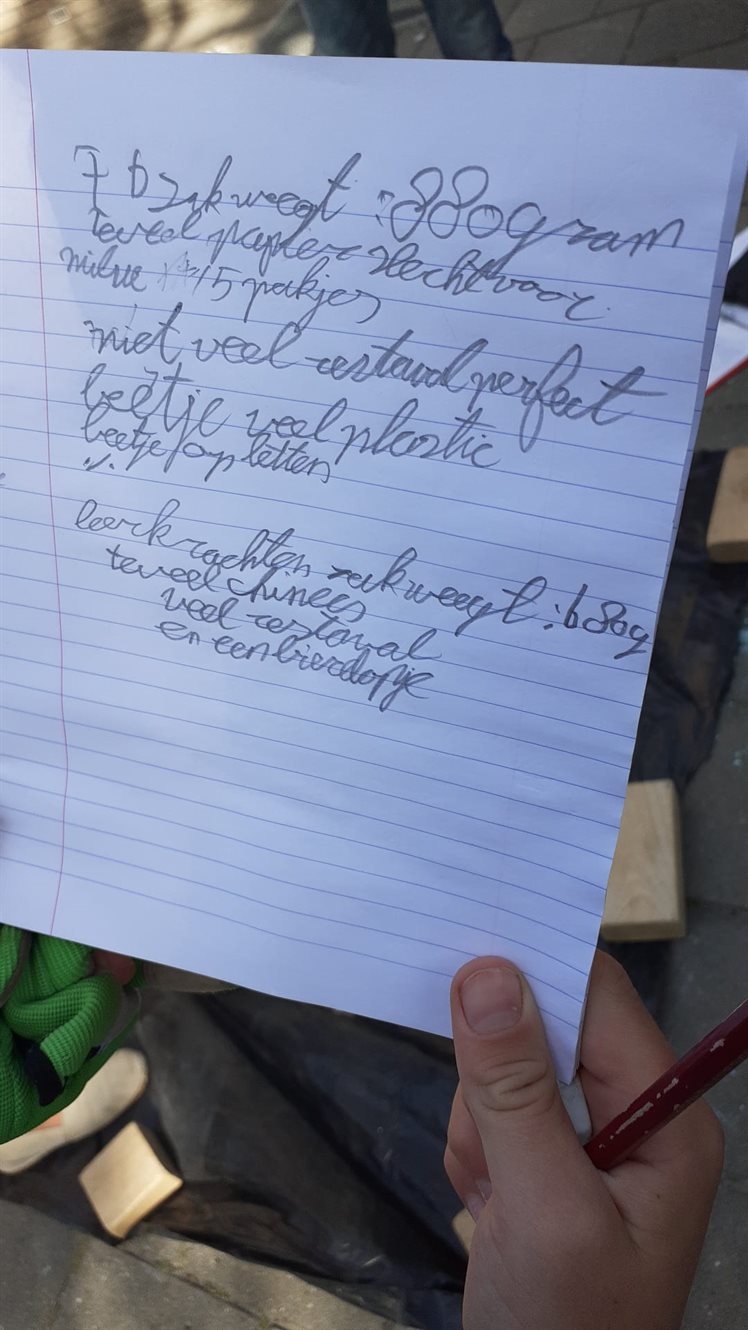 7 b zak weegt : 880 gram
teveel papier slecht voor
milue 15 pakjes
niet veel restaval perfect
beetje veel plastic
beetje op letten
leerkrachten zak weegt : 680g
teveel chinees
veel restaval
en een bierdopje